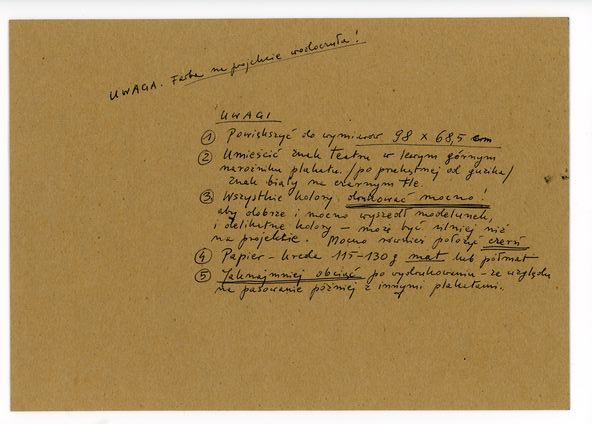 UWAGA. Farba na projekcie wodoczuła!
UWAGI
① Powiększyć do wymiarów 98 x 68,5 cm
② Umieścić znak teatru w lewym górnym
narożniku plakatu /po przekątnej od guzika/
znak biały na czarnym tle.
③ Wszystkie kolory drukować mocno!
aby dobrze i mocno wyszedł modelunek,
i delikatne kolory – może być silniej niż
na projekcie. Mocno również położyć czerń
④ Papier – kreda 115–130 g mat lub półmat
⑤ Jaknajmniej obciąć po wydrukowaniu – ze względu
na pasowanie później z innymi plakatami.